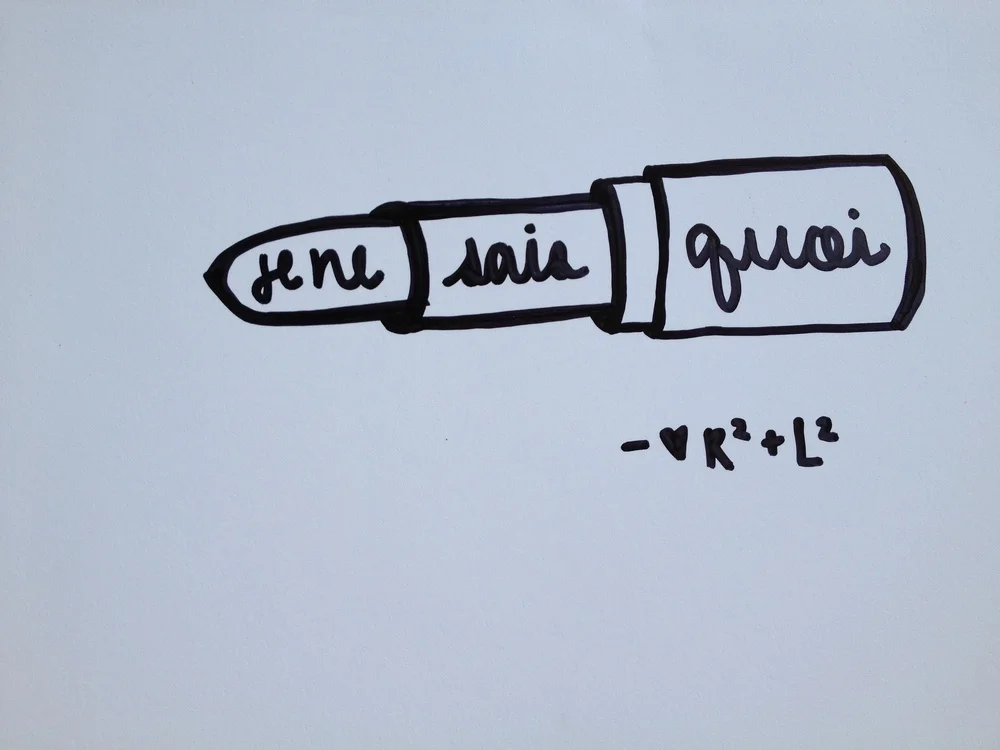 je ne sais quoi
- ♥ R² + L²